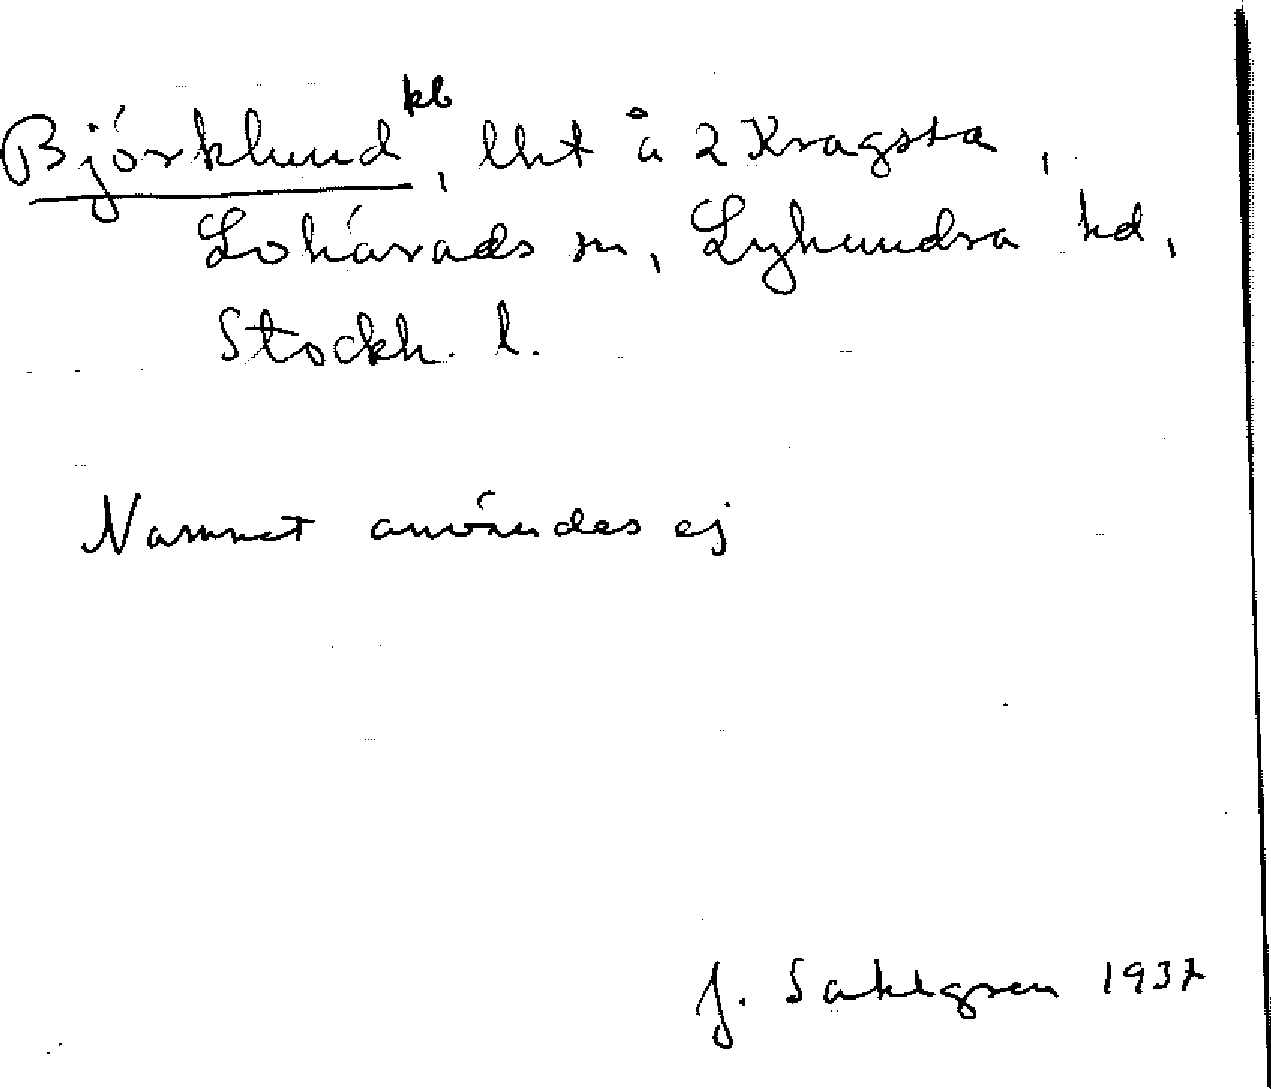 Björklund kb, lht å 2 Kragsta,
Lohärads sn, Lyhundra hd,
Stockh. l.
Namnet användes ej
J. Sahlgren 1937